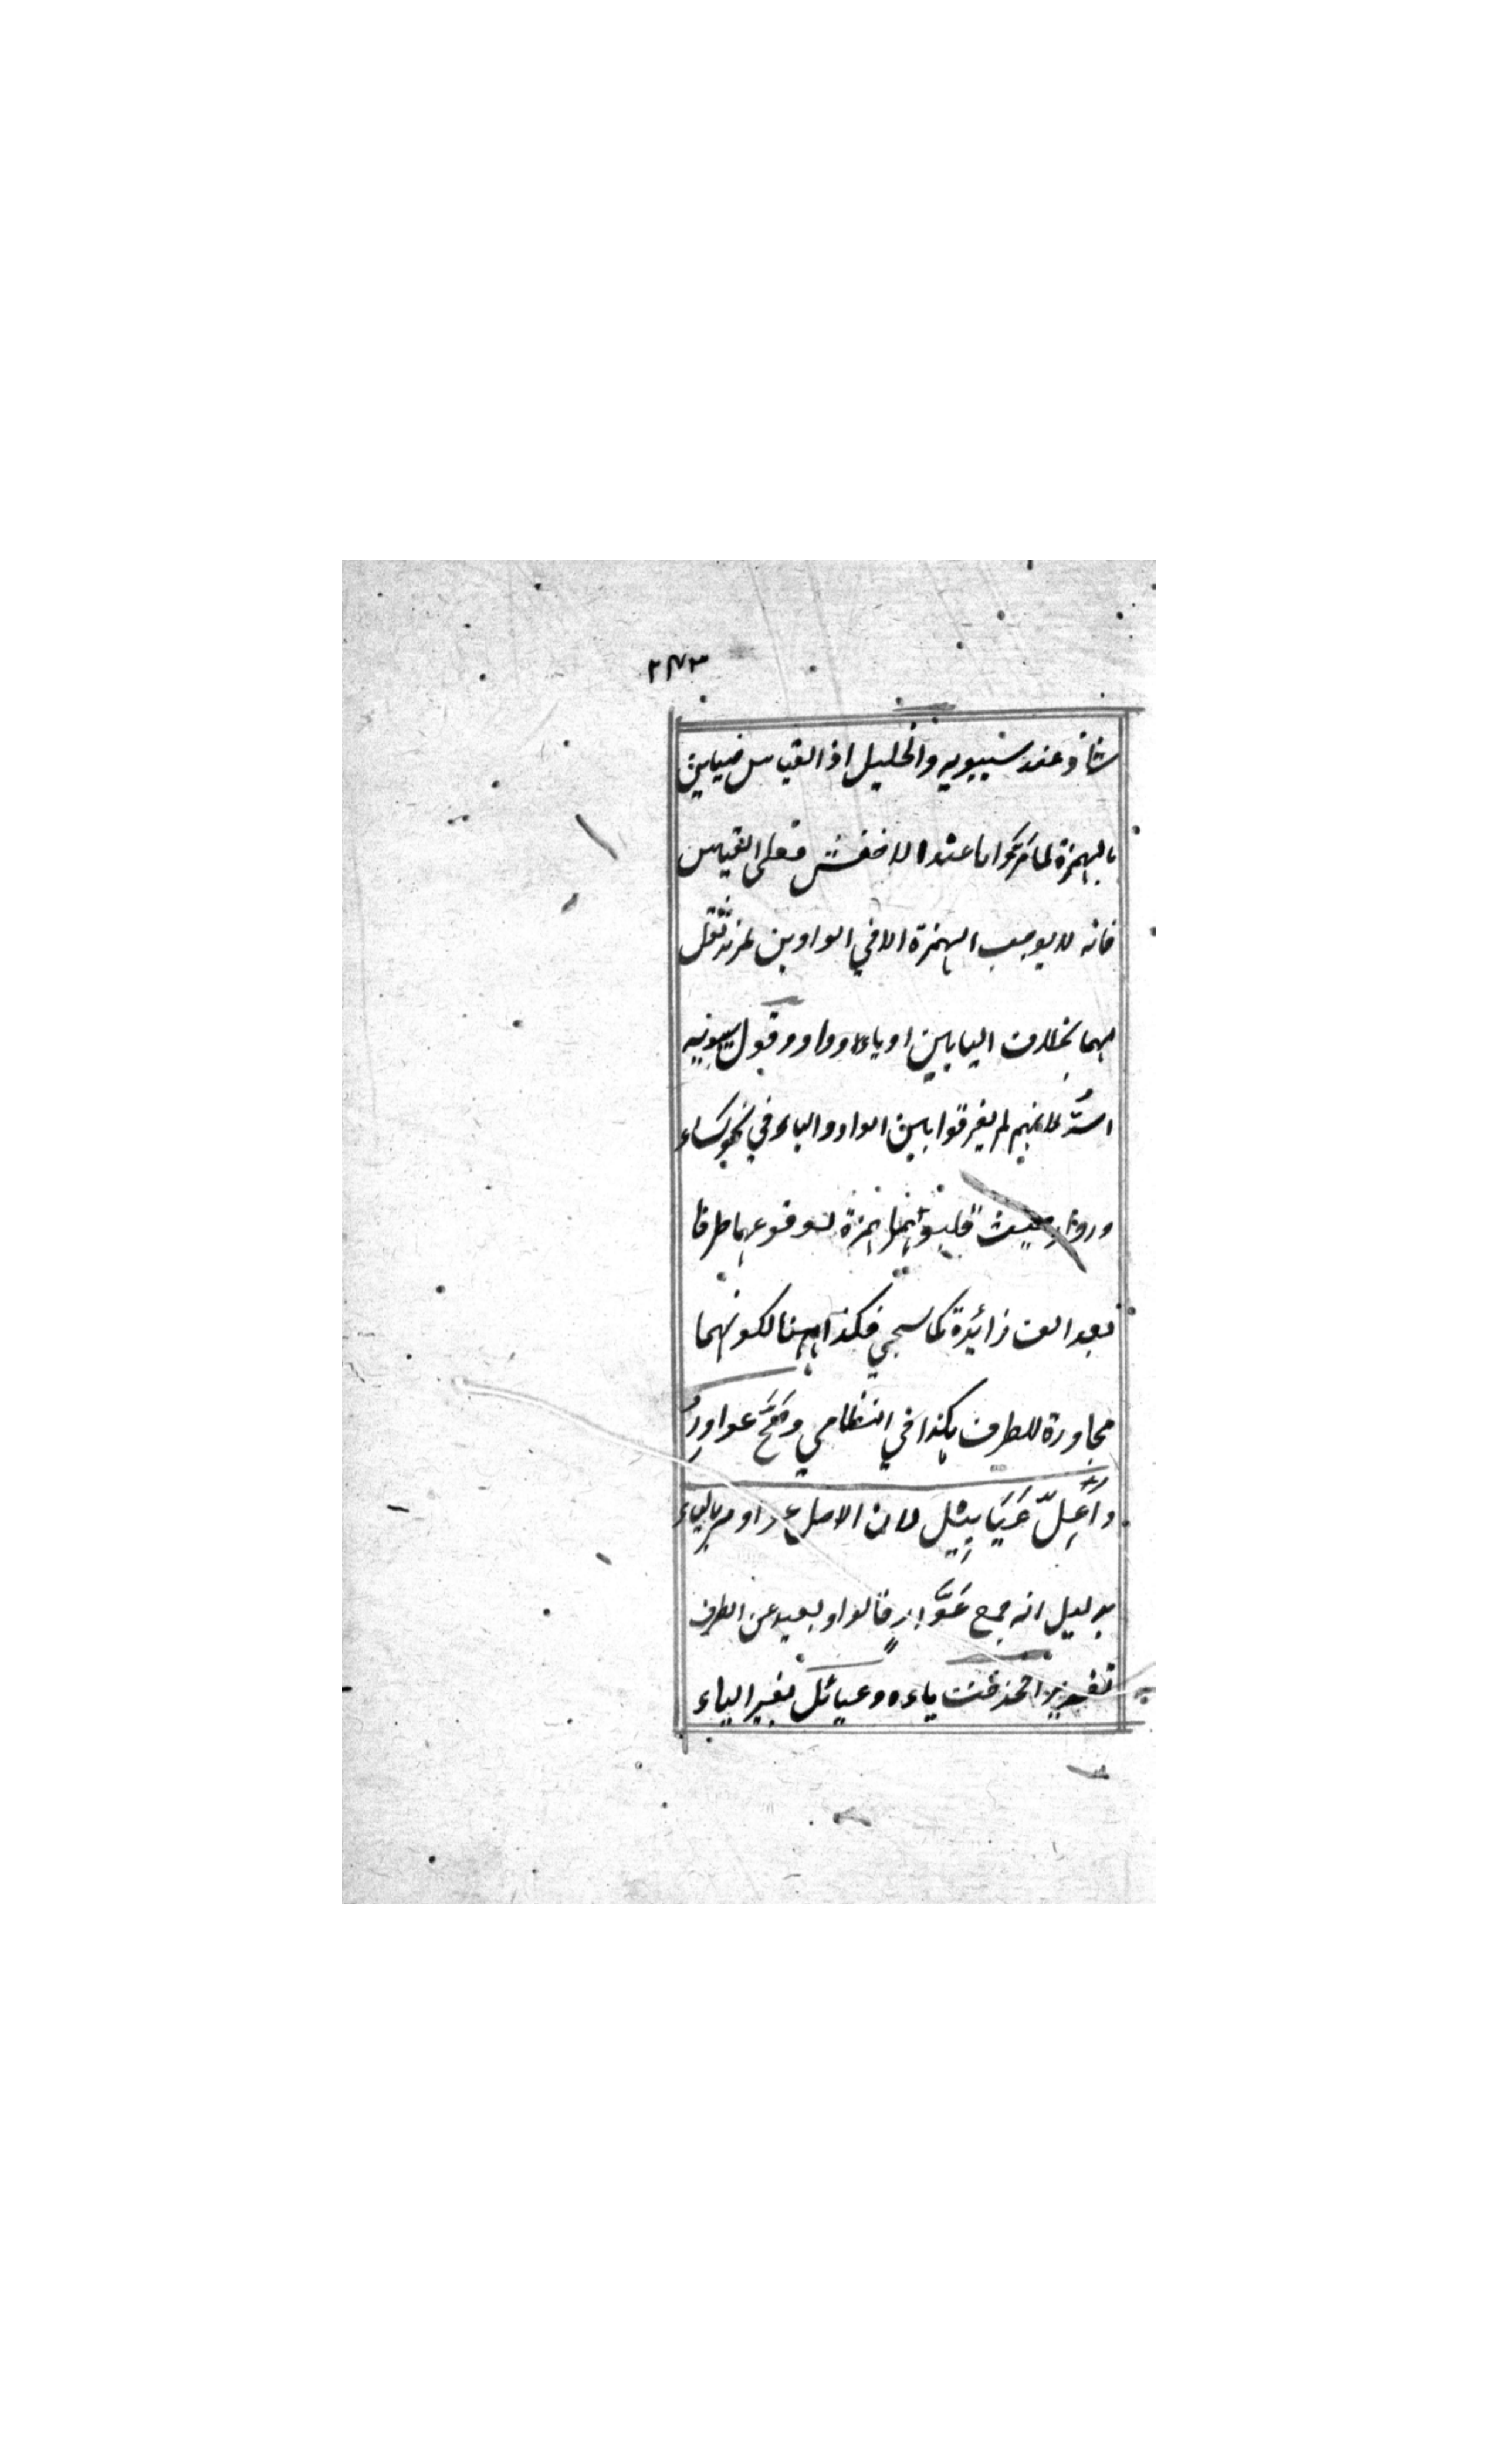 ٢٧٣
شاذ عند سيبويه والخليل اذ القياس ضيائن
بالهمزة لما مر وا ما عند الاخفش فعلى القياس
فانه لا يوجب الهمزة الا في الواوين لمزيد ثقل
لهما بخلاف اليايين او ياء وواو وقول سيبويه
اسدّ لانهم لم يفرقوا بين الواو والياء في نحو كساء
ورداء حيث قلبوهما همزة لوقوعهما طرفا
بعد الف زائدة كما سيجي فكذا ههنا لكونهما
مجاورة للطرف هكذا في النظامي وصَحَّ عواوِرُ
واُعِلّ عَيَايِيل لان الاصل عواوير بالياء
بدليل انه جمع عَوَّار فالواو بعيد عن الطرف
تقديرا فحذفت ياءه وعيائل بغير الياء